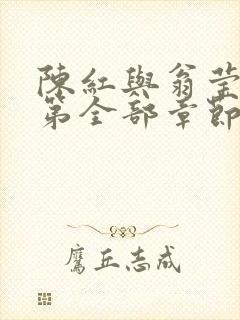 陳紅與翁莹
第全部章節
鷹丘志成